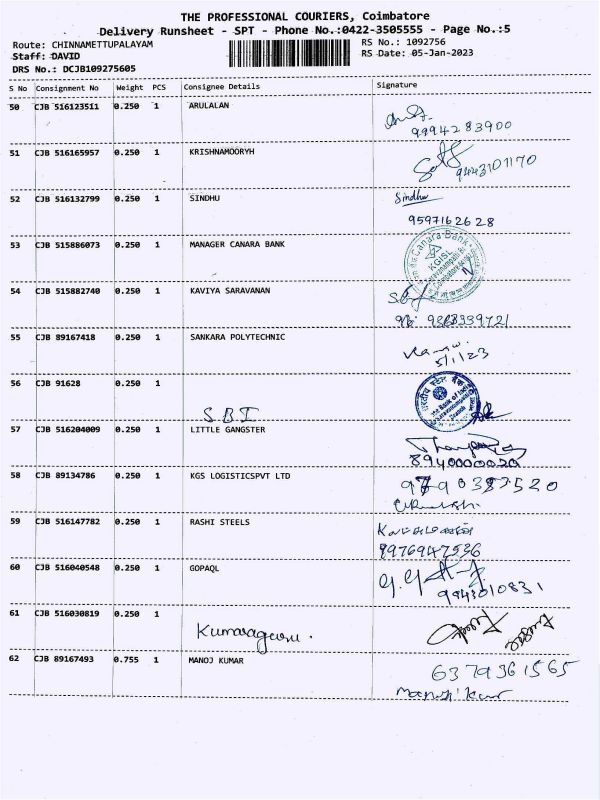 THE PROFESSIONAL COURIERS, Coimbatore
Delivery Runsheet - SPT - Phone No.:0422-3505555 - Page No.:5
Route: CHINNAMETTUPALAYAM RS No.: 1092756
Staff: DAVID RS Date: 05-Jan-2023
DRS No.: DCJB109275605
S No Consignment No Weight PCS Consignee Details Signature
50 CJB 516123511 0.250 1 ARULALAN
9994283900
51 CJB 516165957 0.250 1 KRISHNAMOORYH
52 CJB 516132799 0.250 1 SINDHU Sindhu
9597162628
53 CJB 515886073 0.250 1 MANAGER CANARA BANK
Canara Bank
KGISL
54 CJB 515882740 0.250 1 KAVIYA SARAVANAN
55 CJB 89167418 0.250 1 SANKARA POLYTECHNIC
5/1/23
56 CJB 91628 0.250 1
S.B.I
57 CJB 516204009 0.250 1 LITTLE GANGSTER
8940000020
58 CJB 89134786 0.250 1 KGS LOGISTICSPVT LTD
59 CJB 516147782 0.250 1 RASHI STEELS
9976947536
60 CJB 516040548 0.250 1 GOPAQL
9943010831
61 CJB 516030819 0.250 1
Kumaraguru.
62 CJB 89167493 0.755 1 MANOJ KUMAR
6379361565